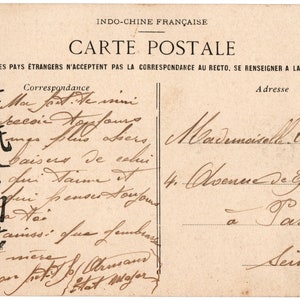 INDO-CHINE FRANÇAISE
CARTE POSTALE
ES PAYS ÉTRANGERS N'ACCEPTENT PAS LA CORRESPONDANCE AU RECTO, SE RENSEIGNER A LA
Correspondance
Adresse
Ma petite mimi
recois toujours
mes plus chers
baisers de celui
qui t'aime et
qui pense toujours
à toi
ainsi que
mère
Armand
État Major
Mademoiselle
4. Avenue de
à Pa
Sein